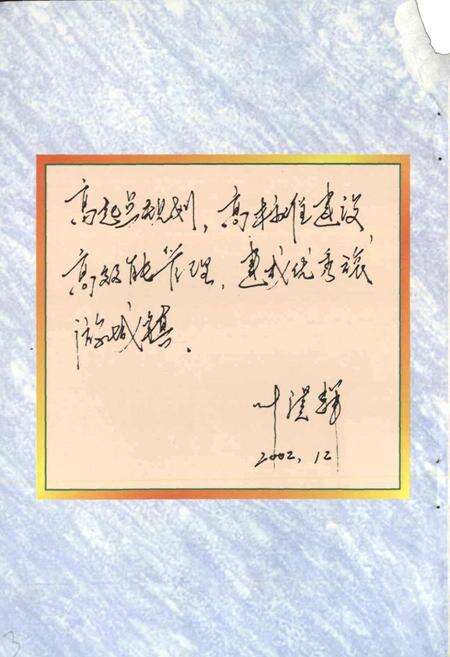 高起点规划，高标准建设，
高效能管理，建成优秀旅
游城镇．
叶 群
2002.12
3